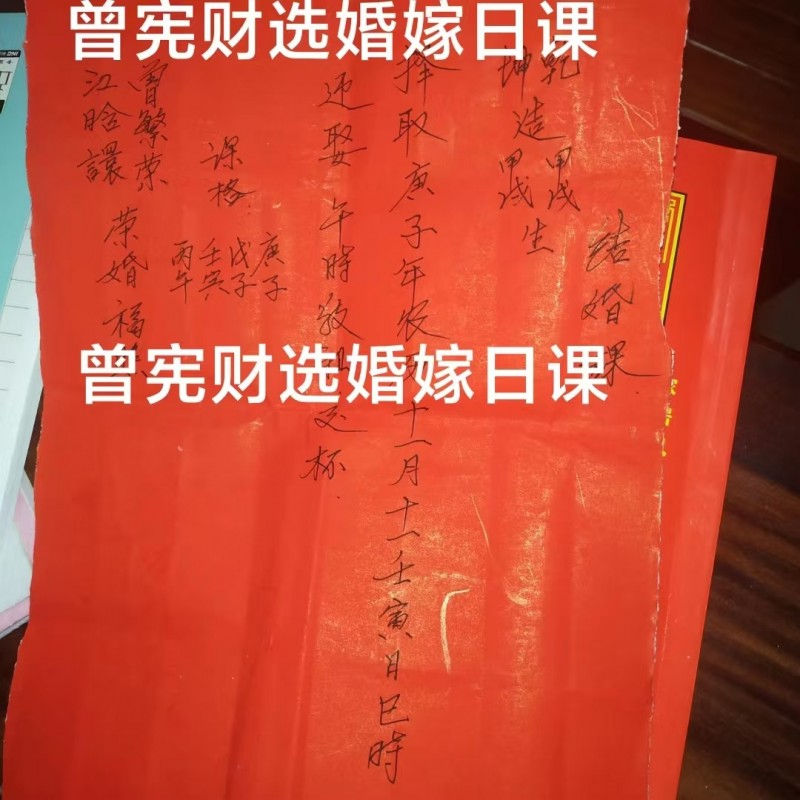 曾宪财选婚嫁日课
结婚课
乾造甲戌
坤造甲戌生
择取庚子年农历十一月十一壬寅日巳時
迎娶 午時敬祖交杯
课格
庚子
戊子
壬寅
丙午
曾繁荣
江晗讓
荣婚福
曾宪财选婚嫁日课